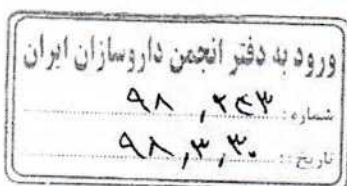 ورود به دفتر انجمن داروسازان ایران
شماره: ۹۸,۲۴۳
تاریخ: ۹۸,۳,۳۰